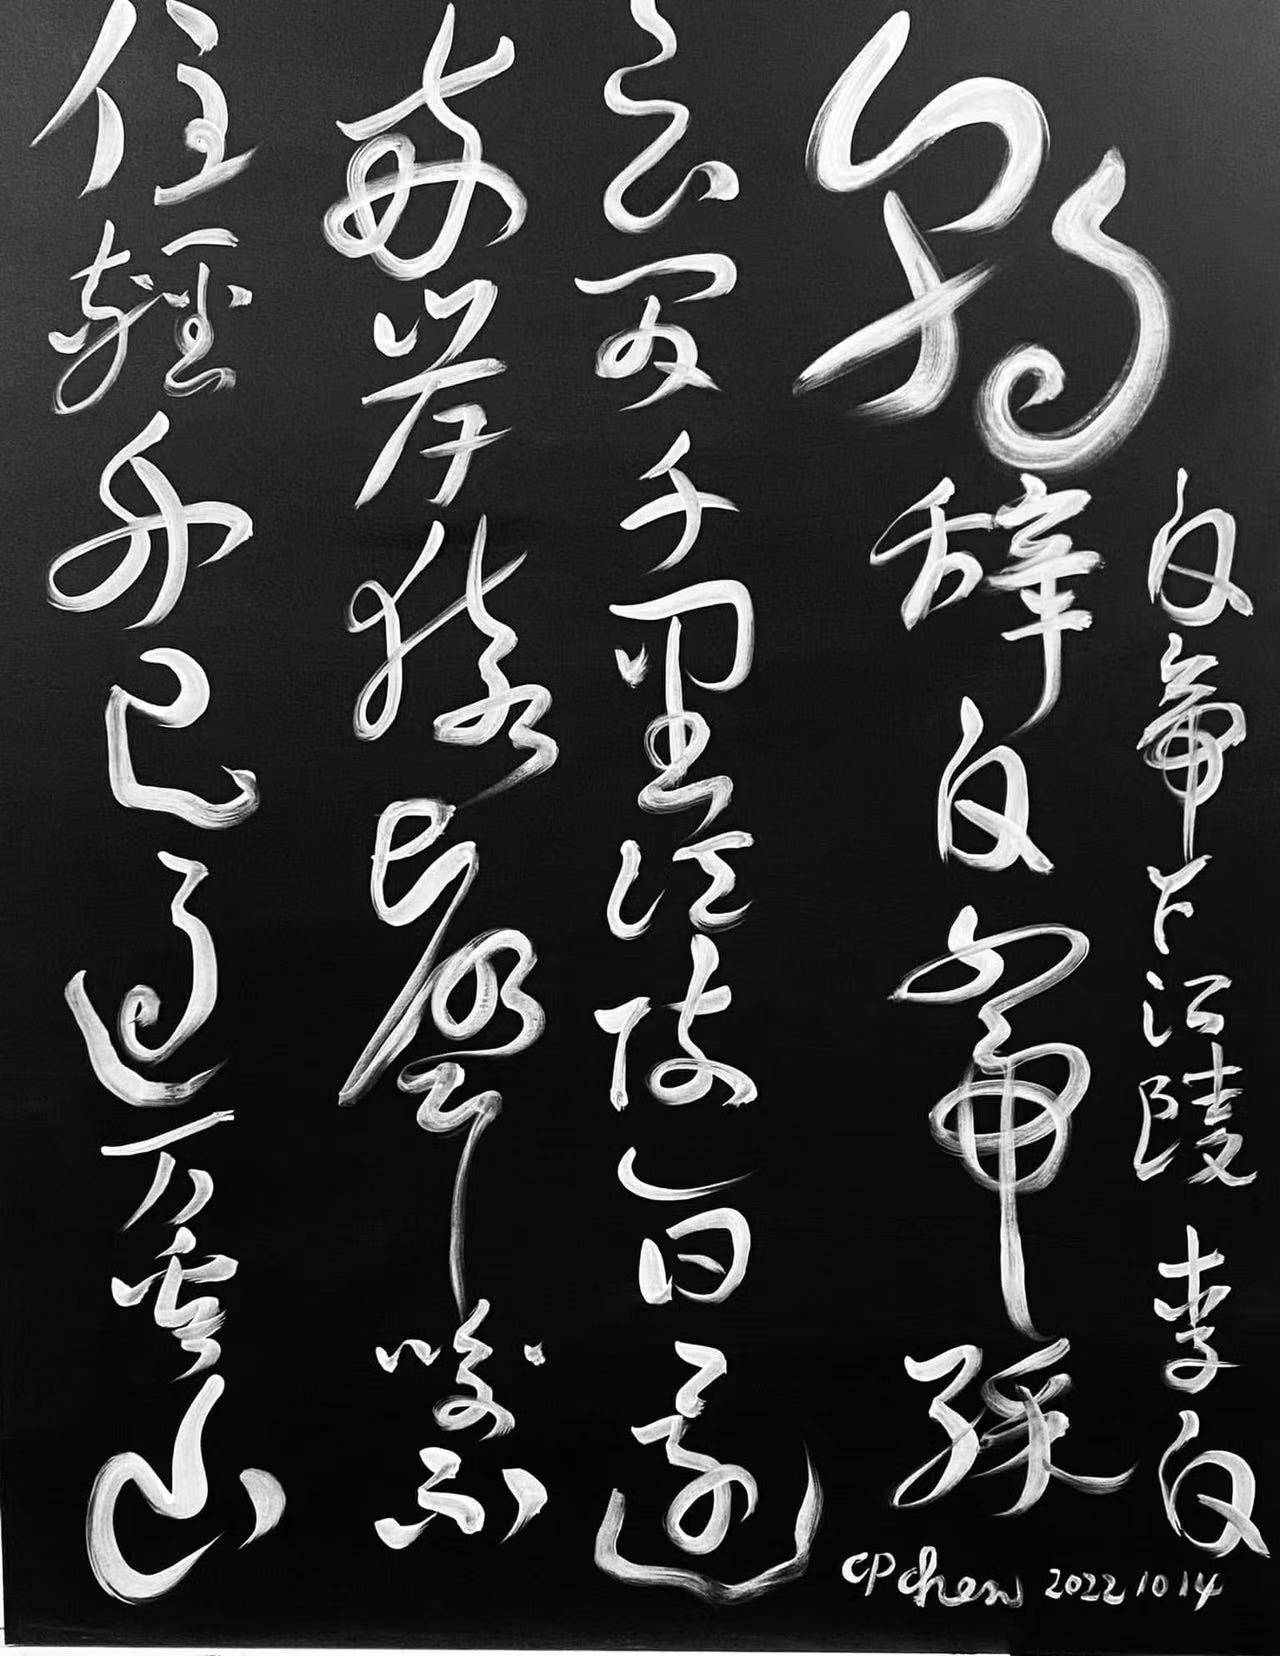 白帝下江陵 李白
朝辭白帝彩
雲間千里江陵一日還
兩岸猿聲啼不
住輕舟已過万重山
CP chen 2022 10 14